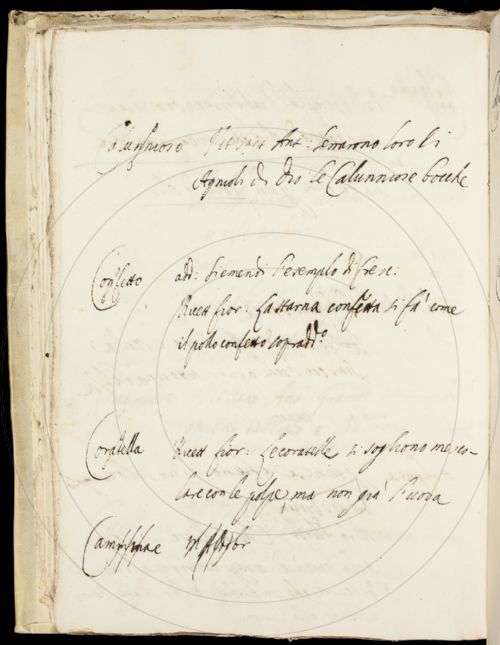 Calunnioso Vit: sant Ant: serrarono loro li
Agnioli di Dio le Calunniose bocche
Confetto add: si emendi l'esemplo di Cresc:
Ricett fior: La starna confetta si fa' come
il pollo confetto sopradd.º
Coratella Ricett fior: Le coratelle si sogliono mesco-
lare con le polpe, ma non già l'uova